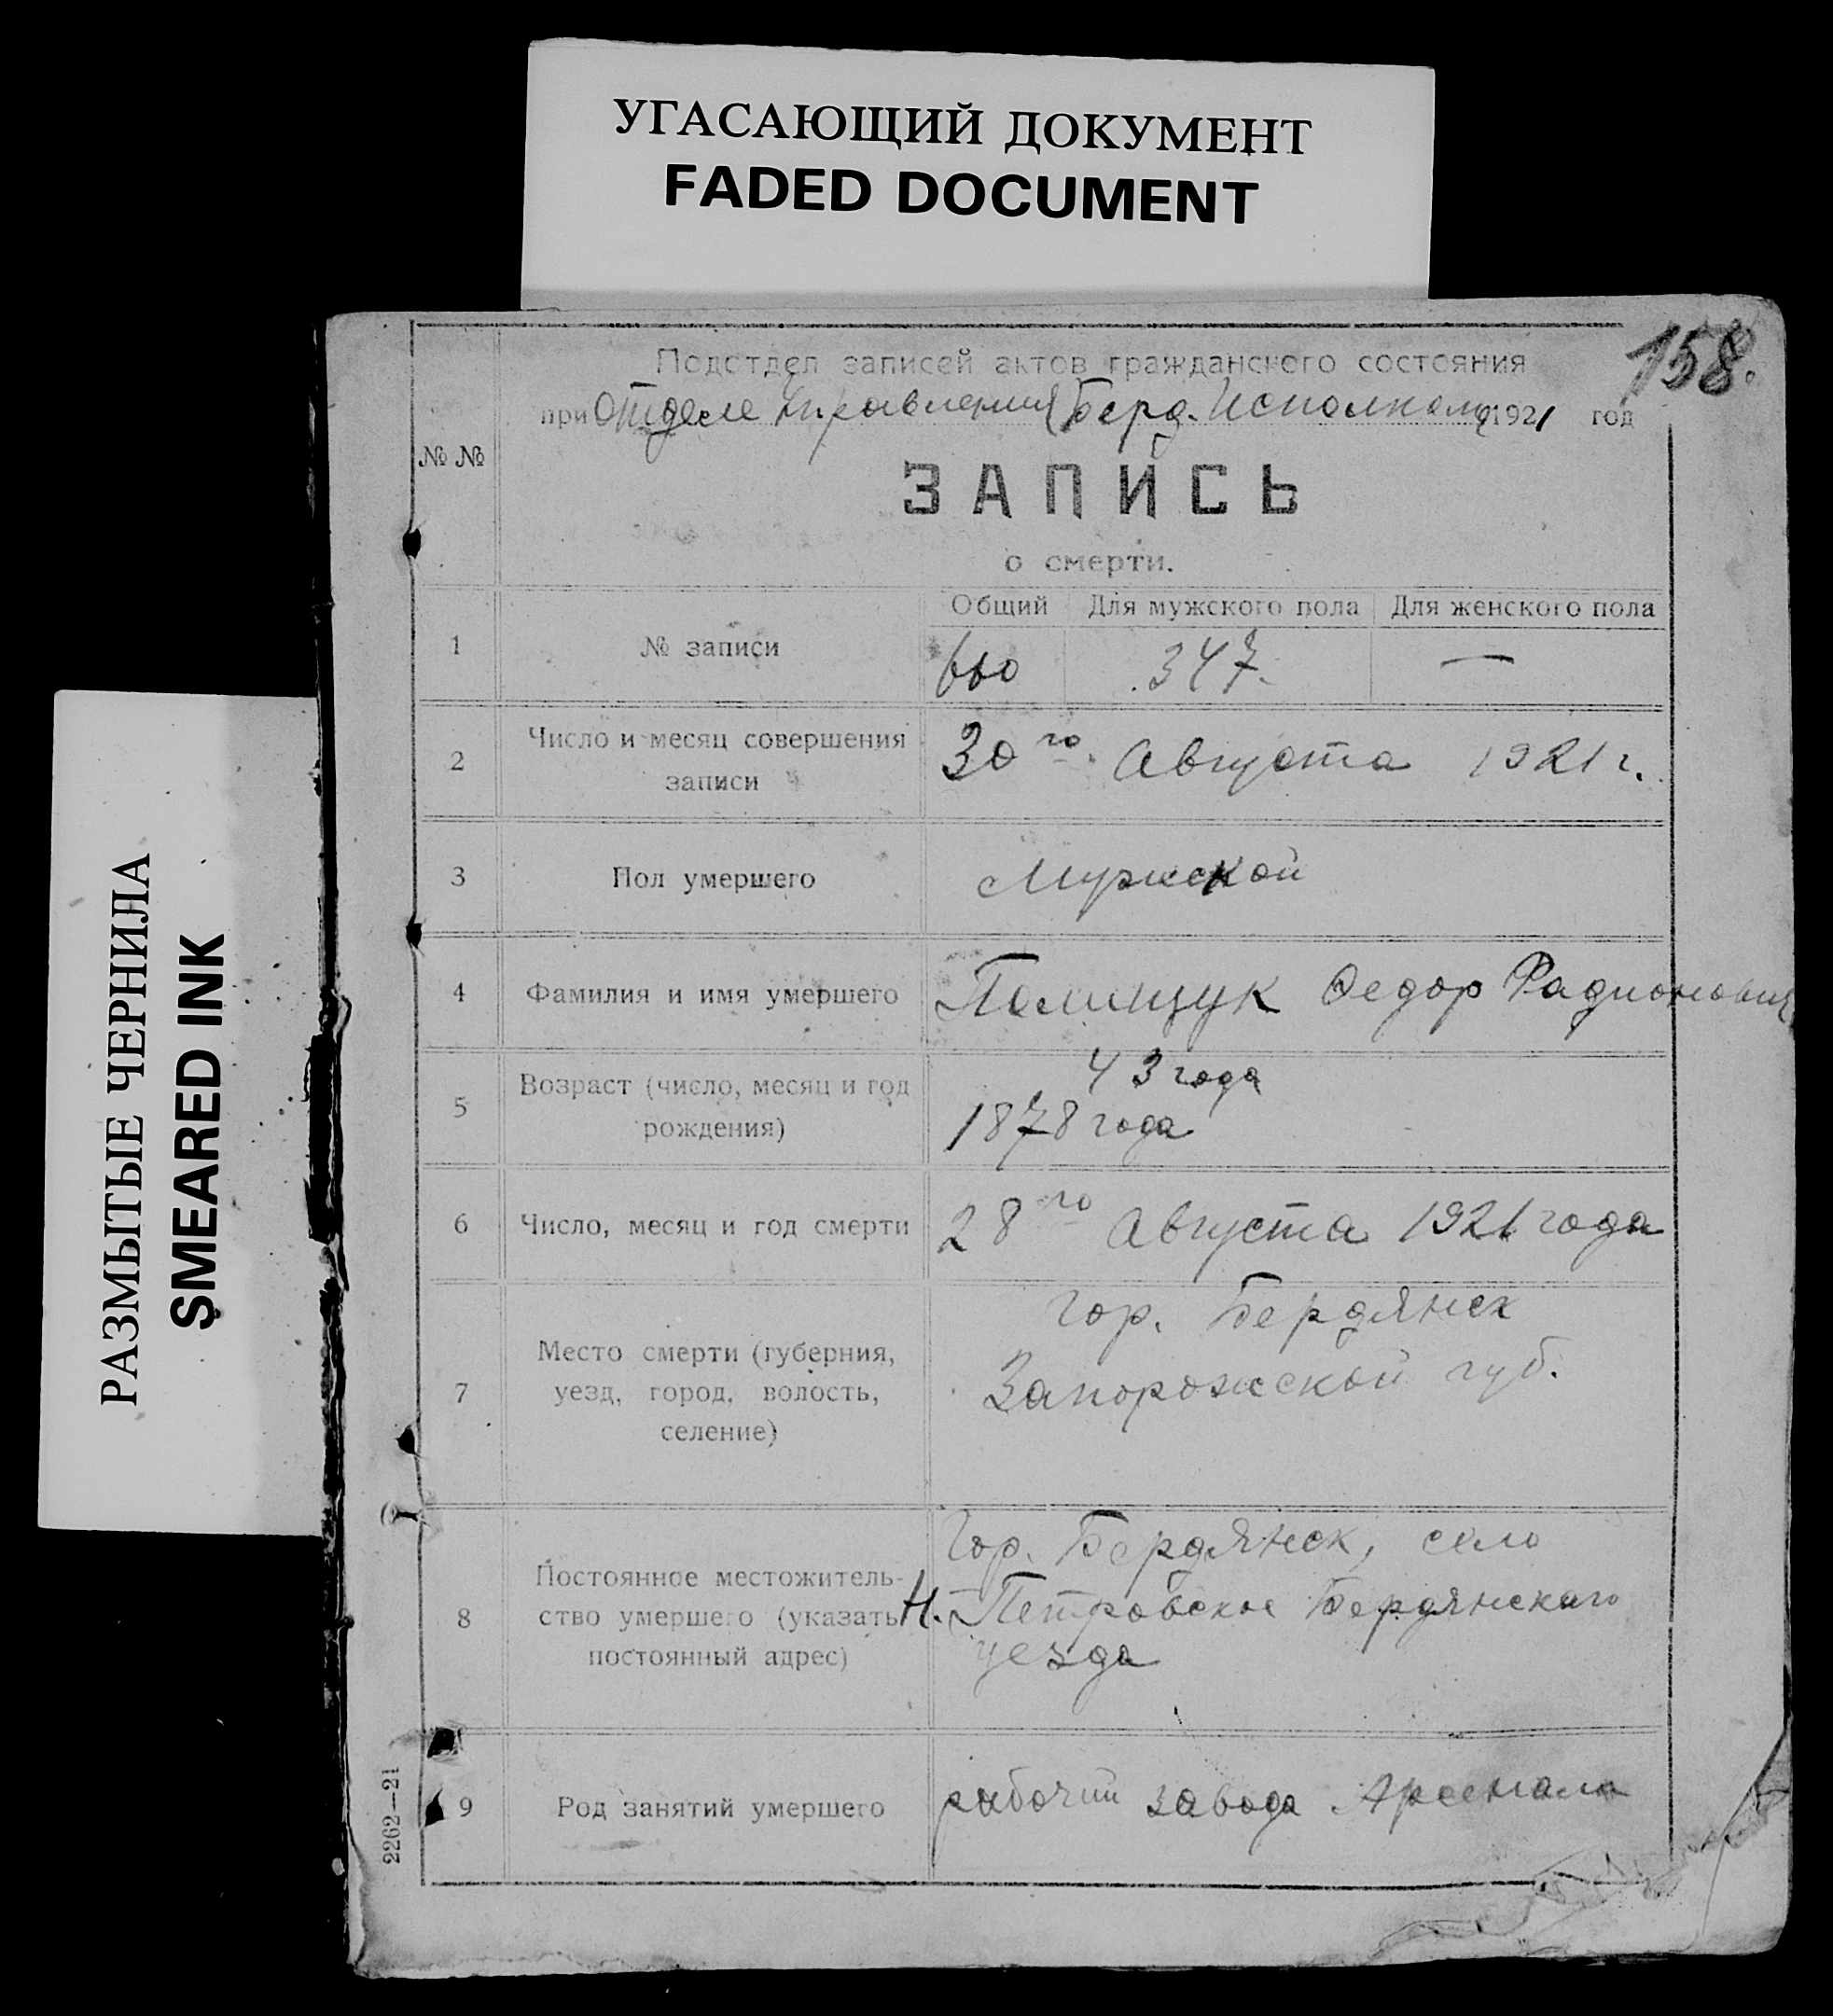 УГАСАЮЩИЙ ДОКУМЕНТ
FADED DOCUMENT
РАЗМЫТЫЕ ЧЕРНИЛА
SMEARED INK
158.
Подотдел записей актов гражданского состояния
при Отделе Управления Берд. Исполкома 1921 год
№ №
ЗАПИСЬ
о смерти.
Общий Для мужского пола Для женского пола
1 № записи 660 347. —
2 Число и месяц совершения
записи
30го Августа 1921 г.
3 Пол умершего Мужской
4 Фамилия и имя умершего Полищук Федор Радионович
5 Возраст (число, месяц и год
рождения)
43 года
1878 года
6 Число, месяц и год смерти 28го Августа 1921 года
7 Место смерти (губерния,
уезд, город, волость,
селение)
гор. Бердянск
Запорожской губ.
8 Постоянное местожитель-
ство умершего (указать
постоянный адрес)
Гор. Бердянск, село
Н. Петровское Бердянского
уезда
9 Род занятий умершего рабочий завода Арсенала
2262—21